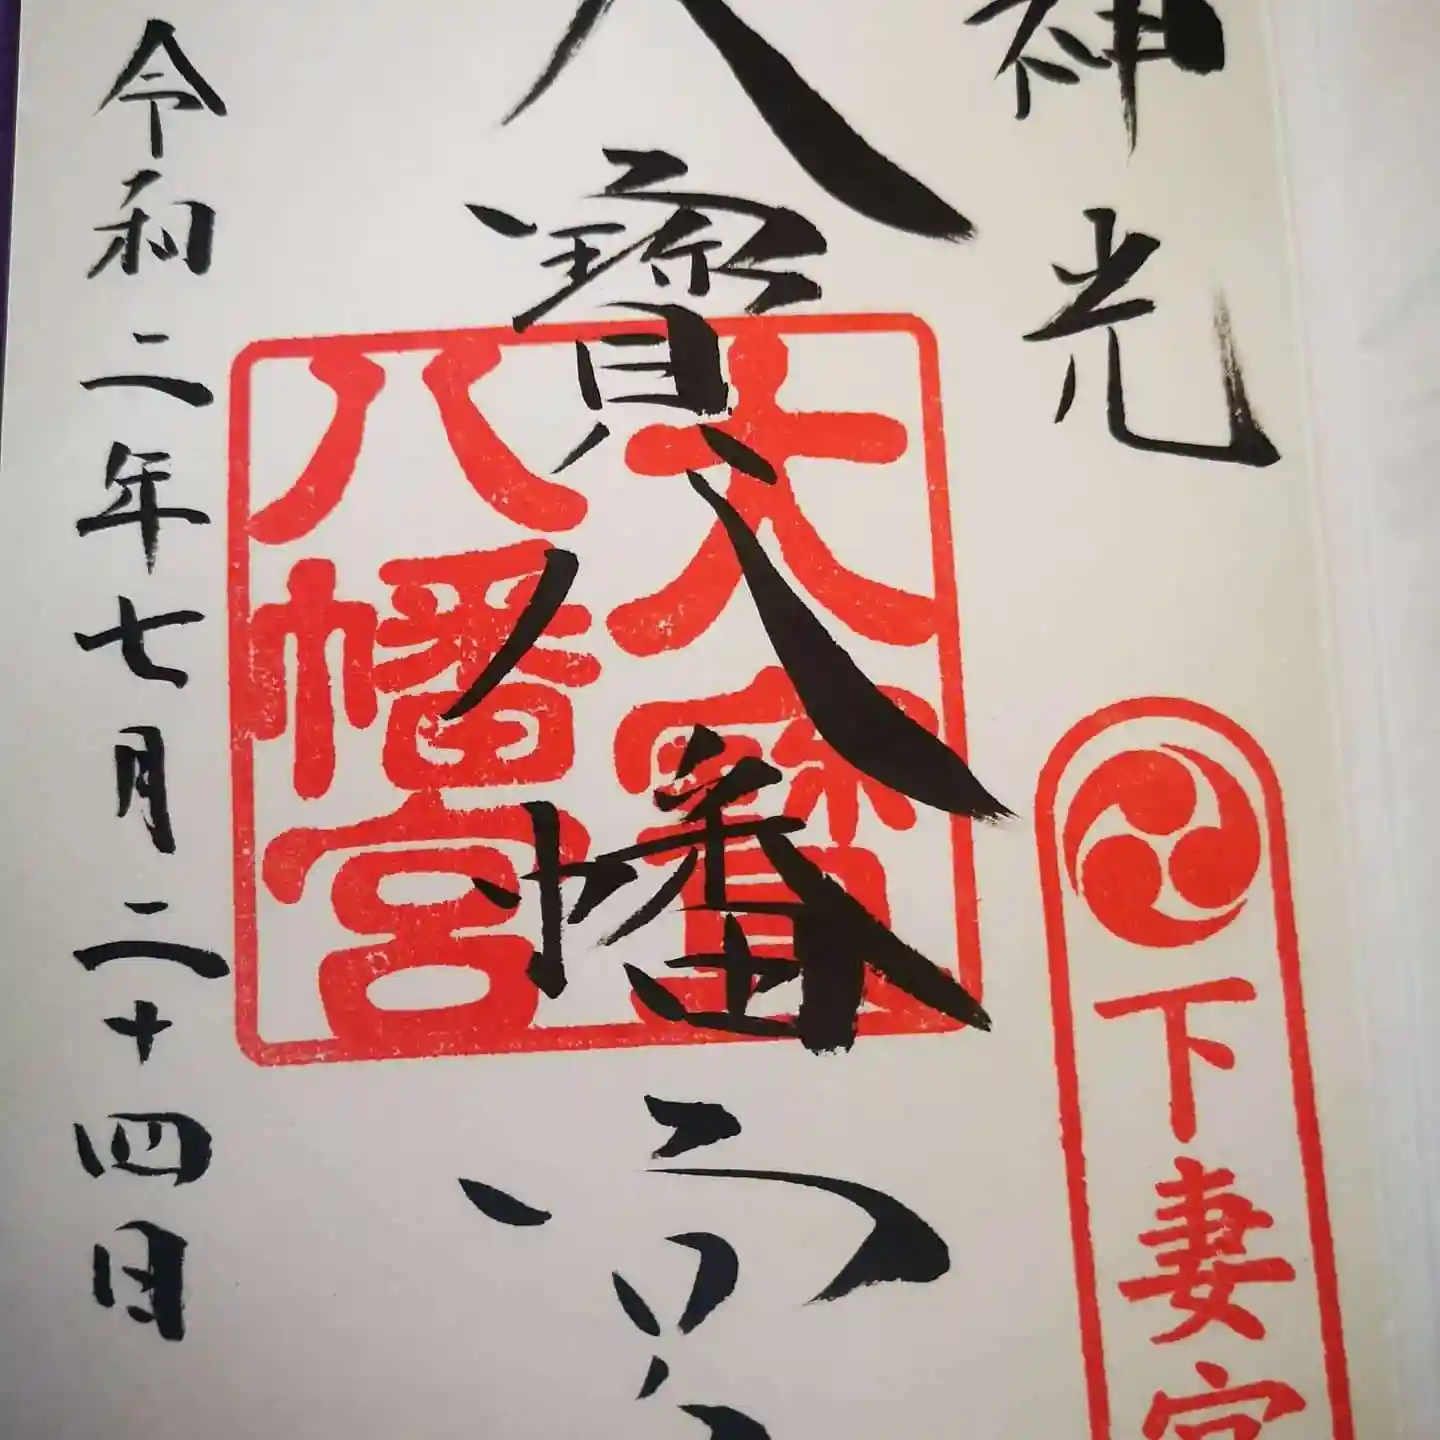 神光
大寶八幡宮
大寶
八幡宮
下妻宮
令和二年七月二十四日